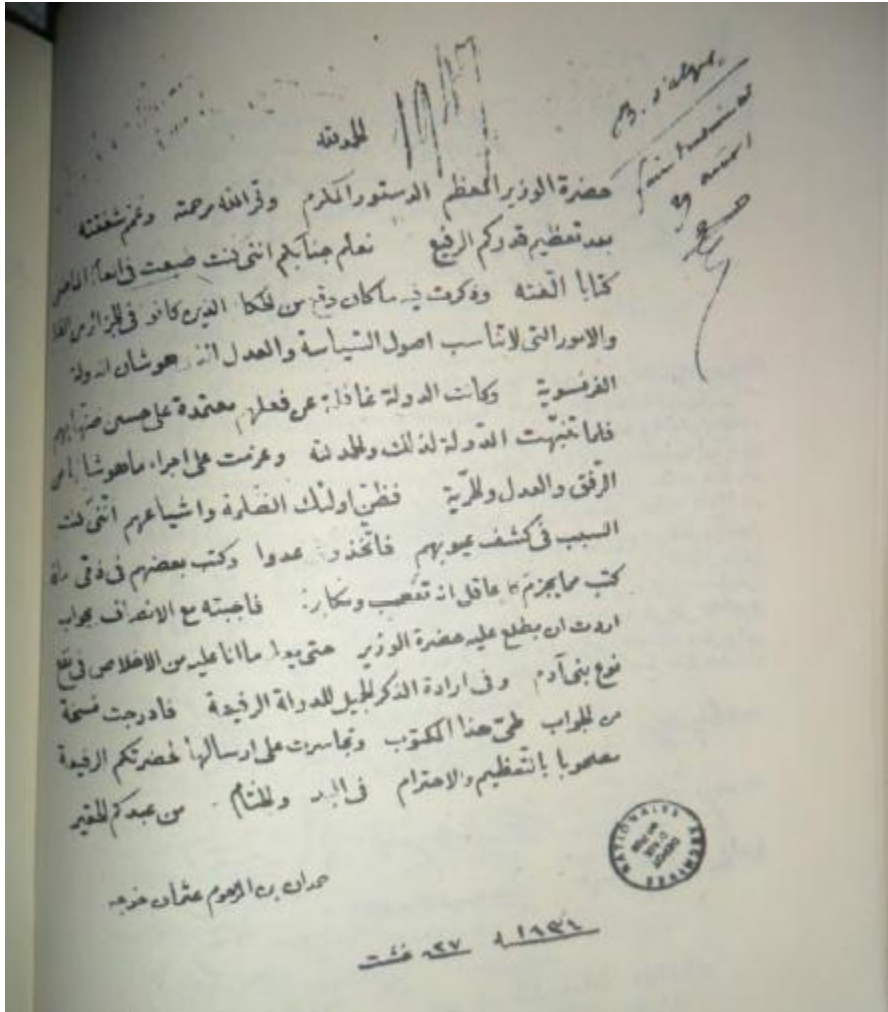 الحمد لله
حضرة الوزير المعظم الدستور المكرم وفر الله رحمته وعمم شفقته
بعد تعظيم قدركم الرفيع نعلم جنابكم انني كنت في العام الماضي
كتابا الفته وذكرت فيه ما كان وقع من الحكام الذين كانو في الجزائر من
والامور التى لا تناسب اصول السياسة والعدل الذى هو شان الدولة
الفرنسوية وكانت الدولة غافلة عن فعلهم معتمدة على حسن
فلما تنبهت الدولة لذلك والحمد لله وعزمت على اجراء ما هو شانها من
الرفق والعدل والحرية فظن اولئك الظلمة واشياعهم انني كنت
السبب فى كشف عيوبهم فاتخذونى عدوا وكتب بعضهم فى ذمى
كتب مما يجزم عاقل انه تعصب ومكابرة فاجبته مع الانصاف بجواب
اردت ان يطلع عليه حضرة الوزير حتى ما انا عليه من الاخلاص فى نفع
نوع بنى آدم وفى ارادة الذكر الجميل للدولة الرفيعة فادرجت نسخة
من الجواب طى هذا المكتوب وتجاسرت على ارسالها لحضرتكم الرفيعة
مصحوبا بالتعظيم والاحترام فى البدء والختام من عبدكم الحقير
حمدان بن المرحوم عثمان خوجه
٢٧ غشت
ARCHIVES NATIONALES